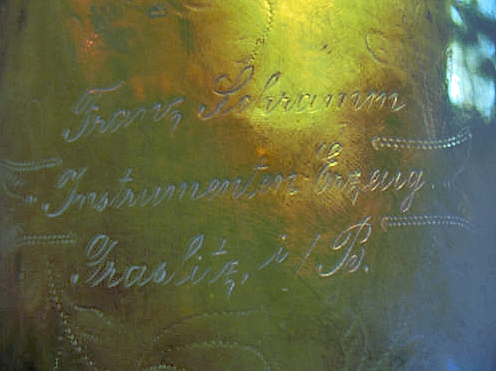 Franz Schramm
Instrumenten Erzeug.
Graslitz, i/B.